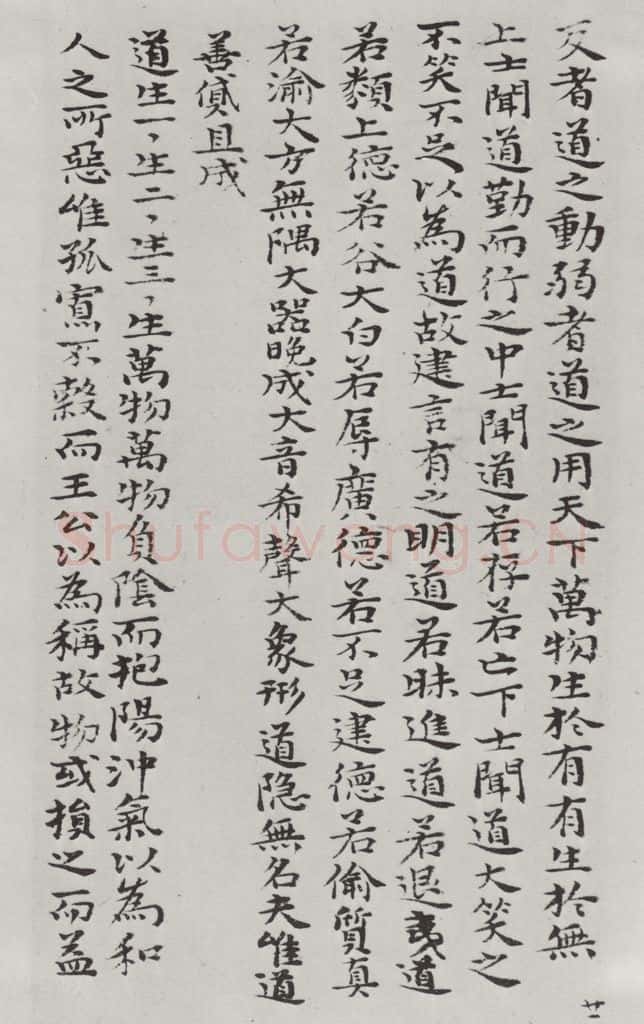 反者道之動弱者道之用天下萬物生於有有生於無
上士聞道勤而行之中士聞道若存若亡下士聞道大笑之
不笑不足以為道故建言有之明道若昧進道若退夷道
若纇上德若谷大白若辱廣德若不足建德若偷質真
若渝大方無隅大器晚成大音希聲大象形道隱無名夫唯道
善貸且成
道生一、生二、生三、生萬物萬物負陰而抱陽沖氣以為和
人之所惡唯孤寡不穀而王公以為稱故物或損之而益
廿一
Shufawang.CN